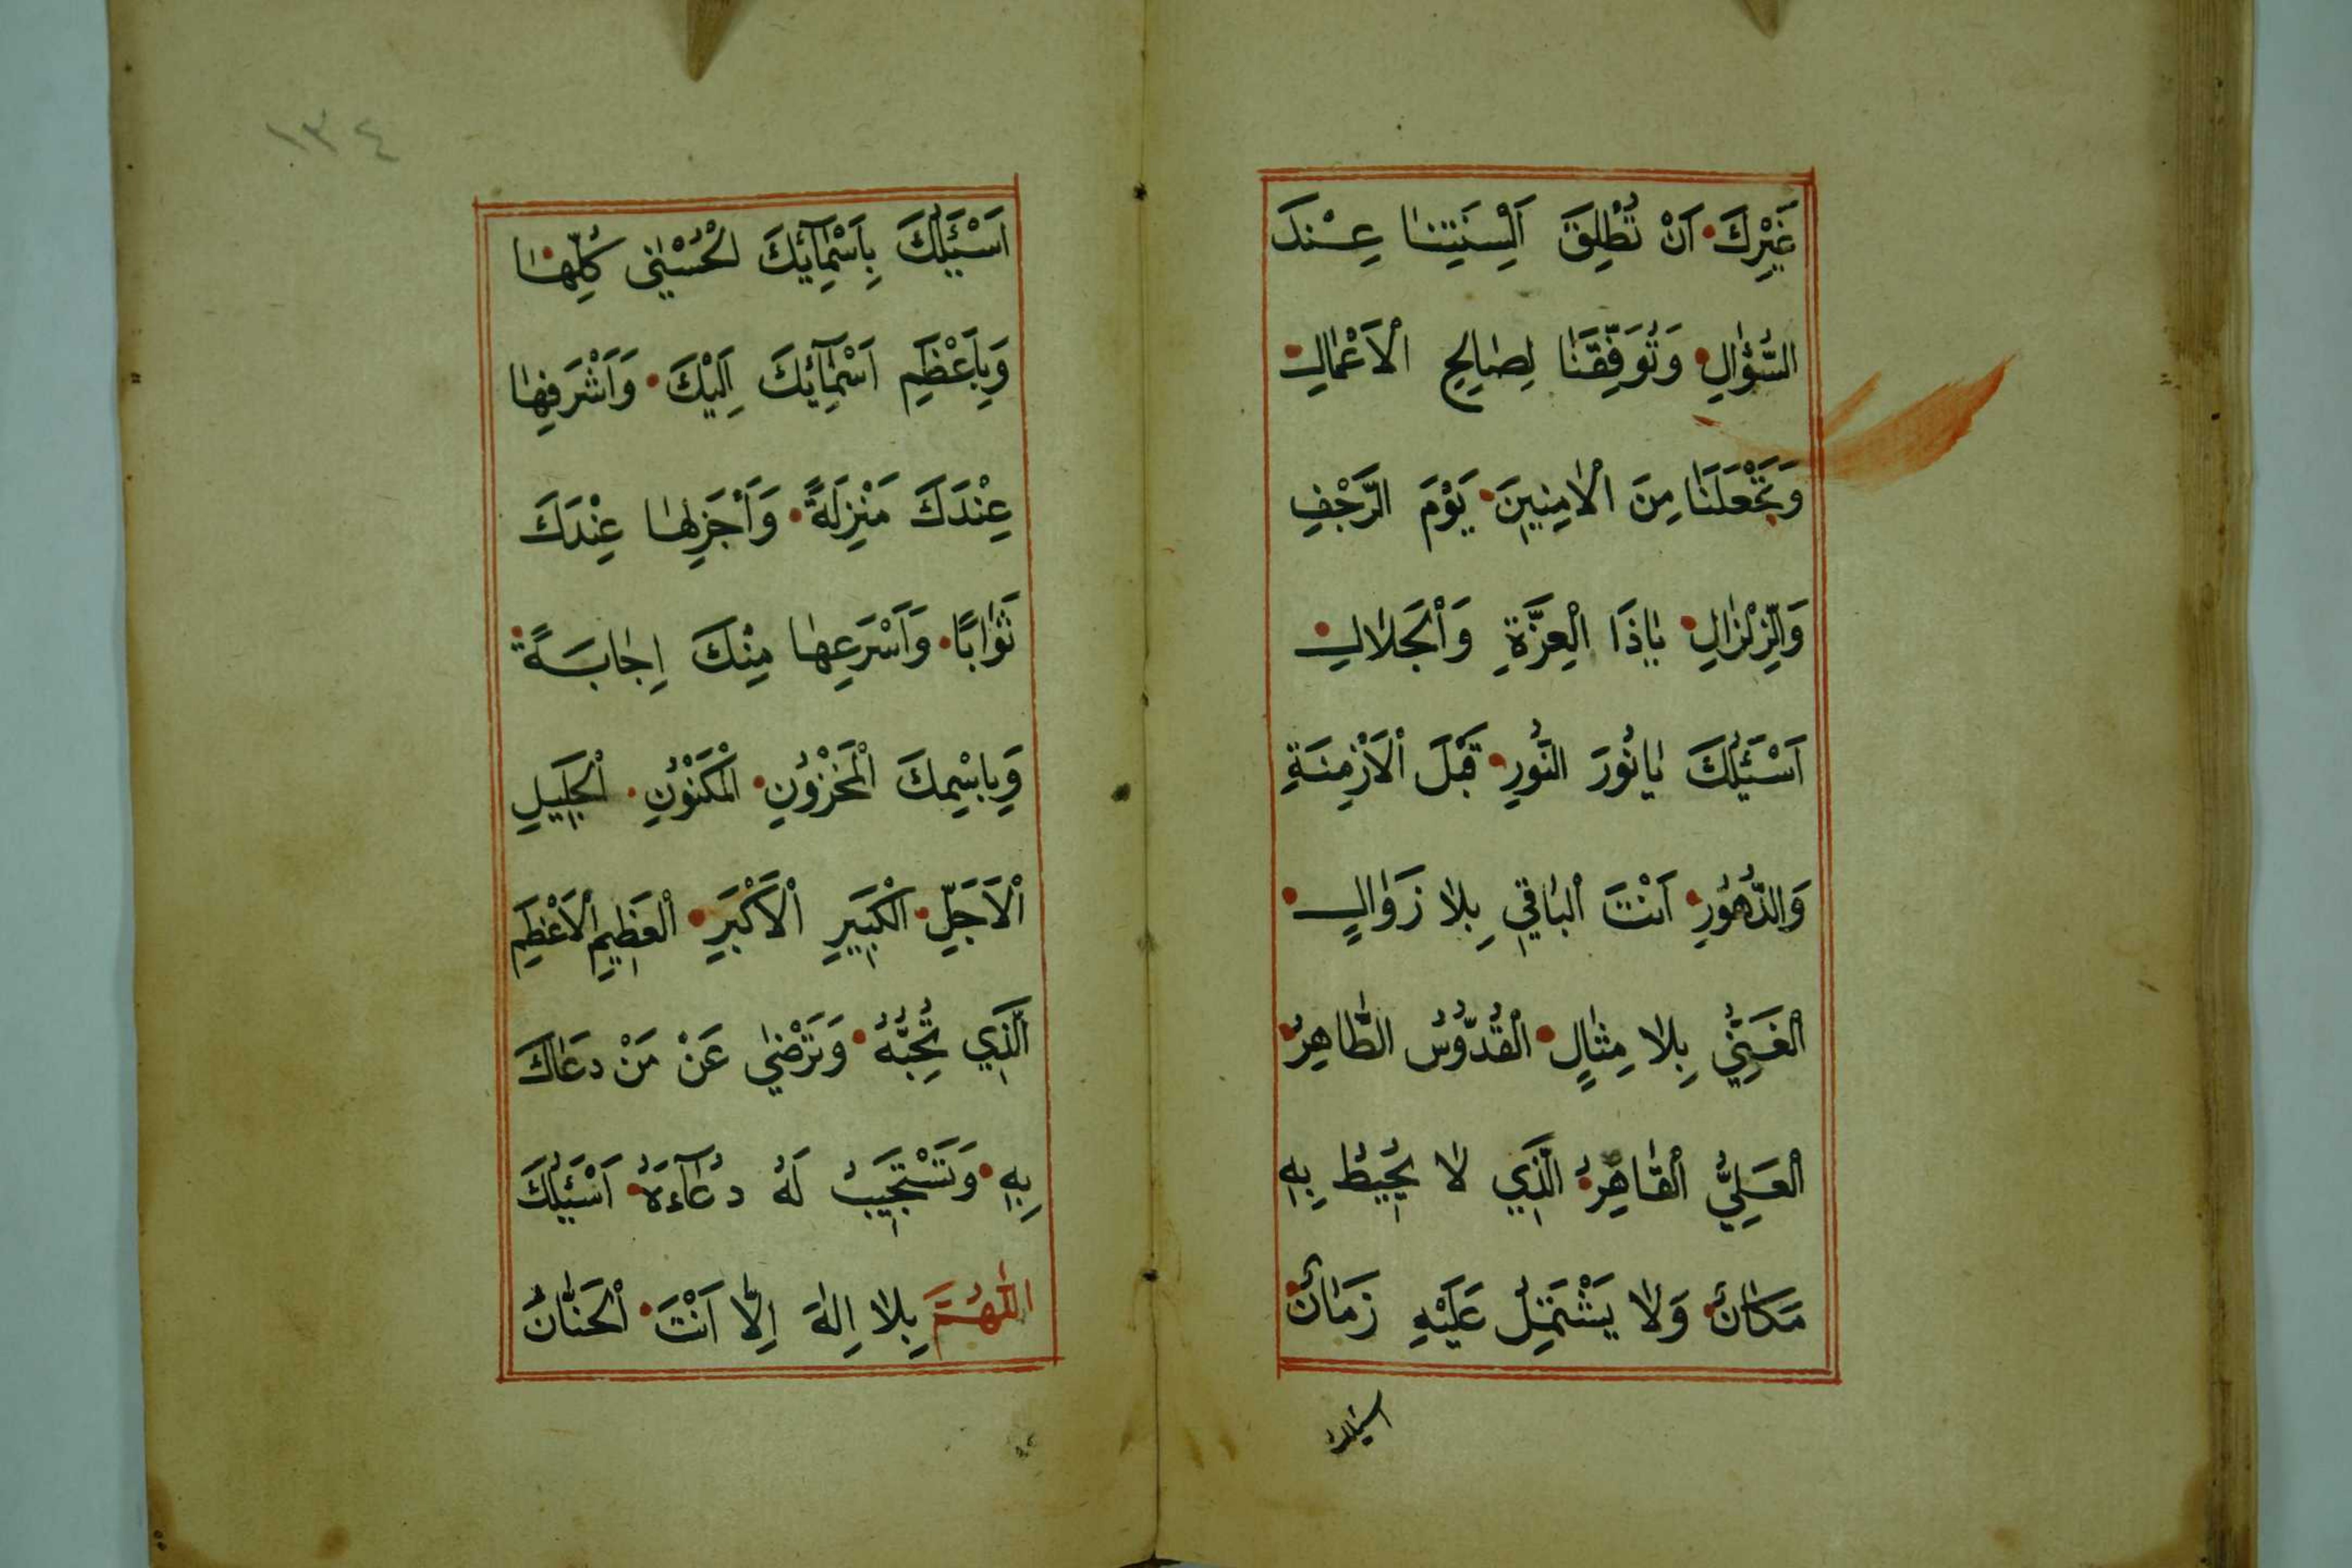 غَيْرِكَ اَنْ تُطْلِقَ اَلْسِنَتِنَا عِنْدَ
السُّؤٰالِ وَتُوَفِّقَنٰا لِصٰالِحِ الْاَعْمٰالِ
وَتَجْعَلَنٰا مِنَ الْاٰمِنِينَ يَوْمَ الرَّجْفِ
وَالزِّلْزٰالِ يٰاذَا الْعِزَّةِ وَالْجَلٰالِ
اَسْئَلُكَ يٰا نُورَ النُّورِ قَبْلَ الْاَزْمِنَةِ
وَالدُّهُورِ اَنْتَ الْبٰاقِي بِلٰا زَوٰالٍ
الْغَنِيُّ بِلٰا مِثٰالٍ الْقُدُّوسُ الطَّاهِرُ
الْعَلِيُّ الْقٰاهِرُ الَّذِي لٰا يُحِيطُ بِهِ
مَكٰانٌ وَلٰا يَشْتَمِلُ عَلَيْهِ زَمٰانٌ
اسئلك
١٣٤
اَسْئَلُكَ بِاَسْمٰائِكَ الْحُسْنٰى كُلِّهٰا
وَبِاَعْظَمِ اَسْمٰائِكَ اِلَيْكَ وَاَشْرَفِهٰا
عِنْدَكَ مَنْزِلَةً وَاَجْزَلِهٰا عِنْدَكَ
ثَوٰابًا وَاَسْرَعِهٰا مِنْكَ اِجٰابَةً
وَبِاسْمِكَ الْمَخْزُونِ الْمَكْنُونِ الْجَلِيلِ
الْاَجَلِّ الْكَبِيرِ الْاَكْبَرِ الْعَظِيمِ الْاَعْظَمِ
الَّذِي تُحِبُّهُ وَتَرْضٰى عَنْ مَنْ دَعٰاكَ
بِهِ وَتَسْتَجِيبُ لَهُ دُعٰآءَهُ اَسْئَلُكَ
اللّٰهُمَّ بِلٰا اِلٰهَ اِلّٰا اَنْتَ الْحَنّٰانُ